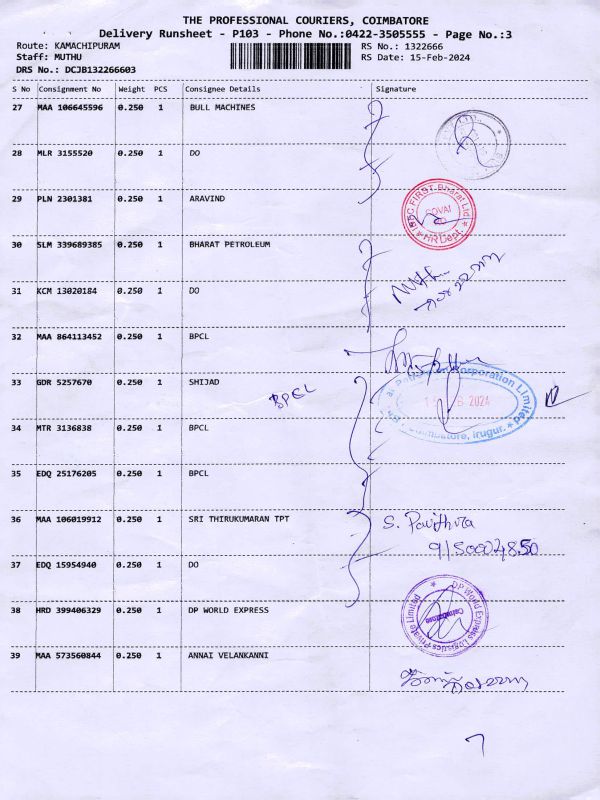 THE PROFESSIONAL COURIERS, COIMBATORE
Delivery Runsheet - P103 - Phone No.:0422-3505555 - Page No.:3
Route: KAMACHIPURAM RS No.: 1322666
Staff: MUTHU RS Date: 15-Feb-2024
DRS No.: DCJB132266603
S No Consignment No Weight PCS Consignee Details Signature
27 MAA 106645596 0.250 1 BULL MACHINES
28 MLR 3155520 0.250 1 DO
29 PLN 2301381 0.250 1 ARAVIND
IDFC FIRST Bharat Ltd
COVAI
HR Dept
30 SLM 339689385 0.250 1 BHARAT PETROLEUM
31 KCM 13020184 0.250 1 DO
32 MAA 864113452 0.250 1 BPCL
33 GDR 5257670 0.250 1 SHIJAD
BPCL
Corporation Limited
2024
Coimbatore, Irugur.
34 MTR 3136838 0.250 1 BPCL
35 EDQ 25176205 0.250 1 BPCL
36 MAA 106019912 0.250 1 SRI THIRUKUMARAN TPT
S. Pavithra
37 EDQ 15954940 0.250 1 DO
38 HRD 399406329 0.250 1 DP WORLD EXPRESS
DP World Express Logistics Private Limited
Coimbatore
39 MAA 573560844 0.250 1 ANNAI VELANKANNI